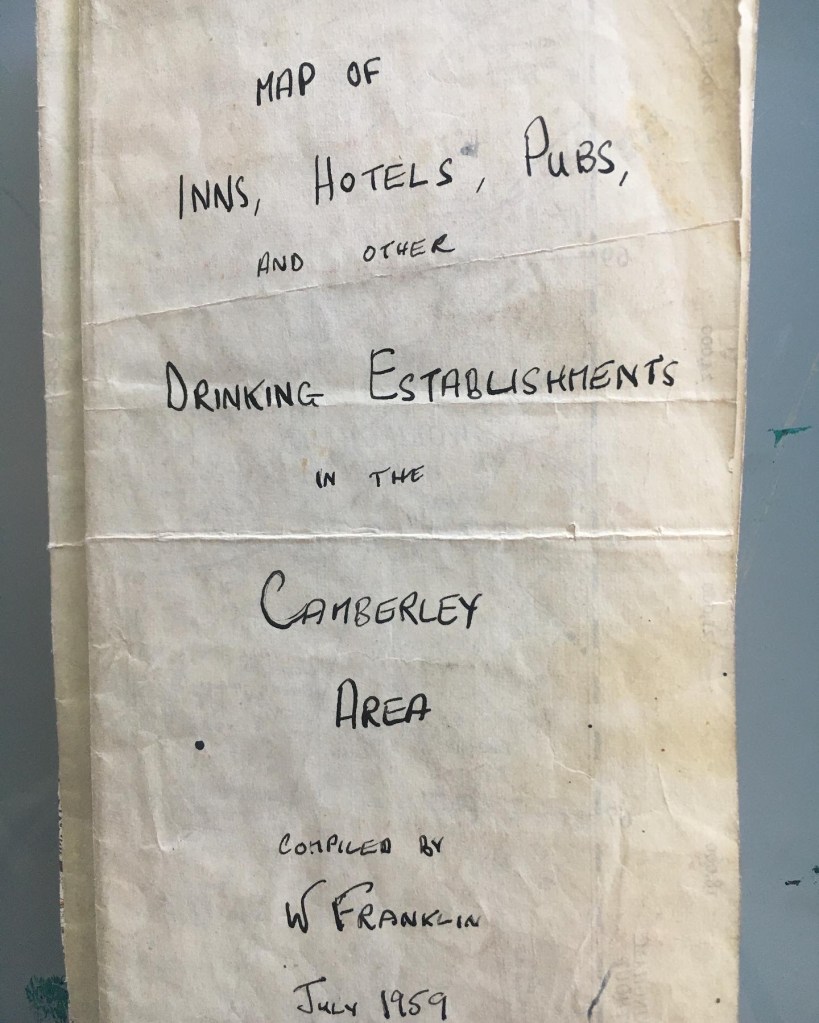 MAP OF
INNS, HOTELS, PUBS,
AND OTHER
DRINKING ESTABLISHMENTS
IN THE
CAMBERLEY
AREA
COMPILED BY
W FRANKLIN
JULY 1959